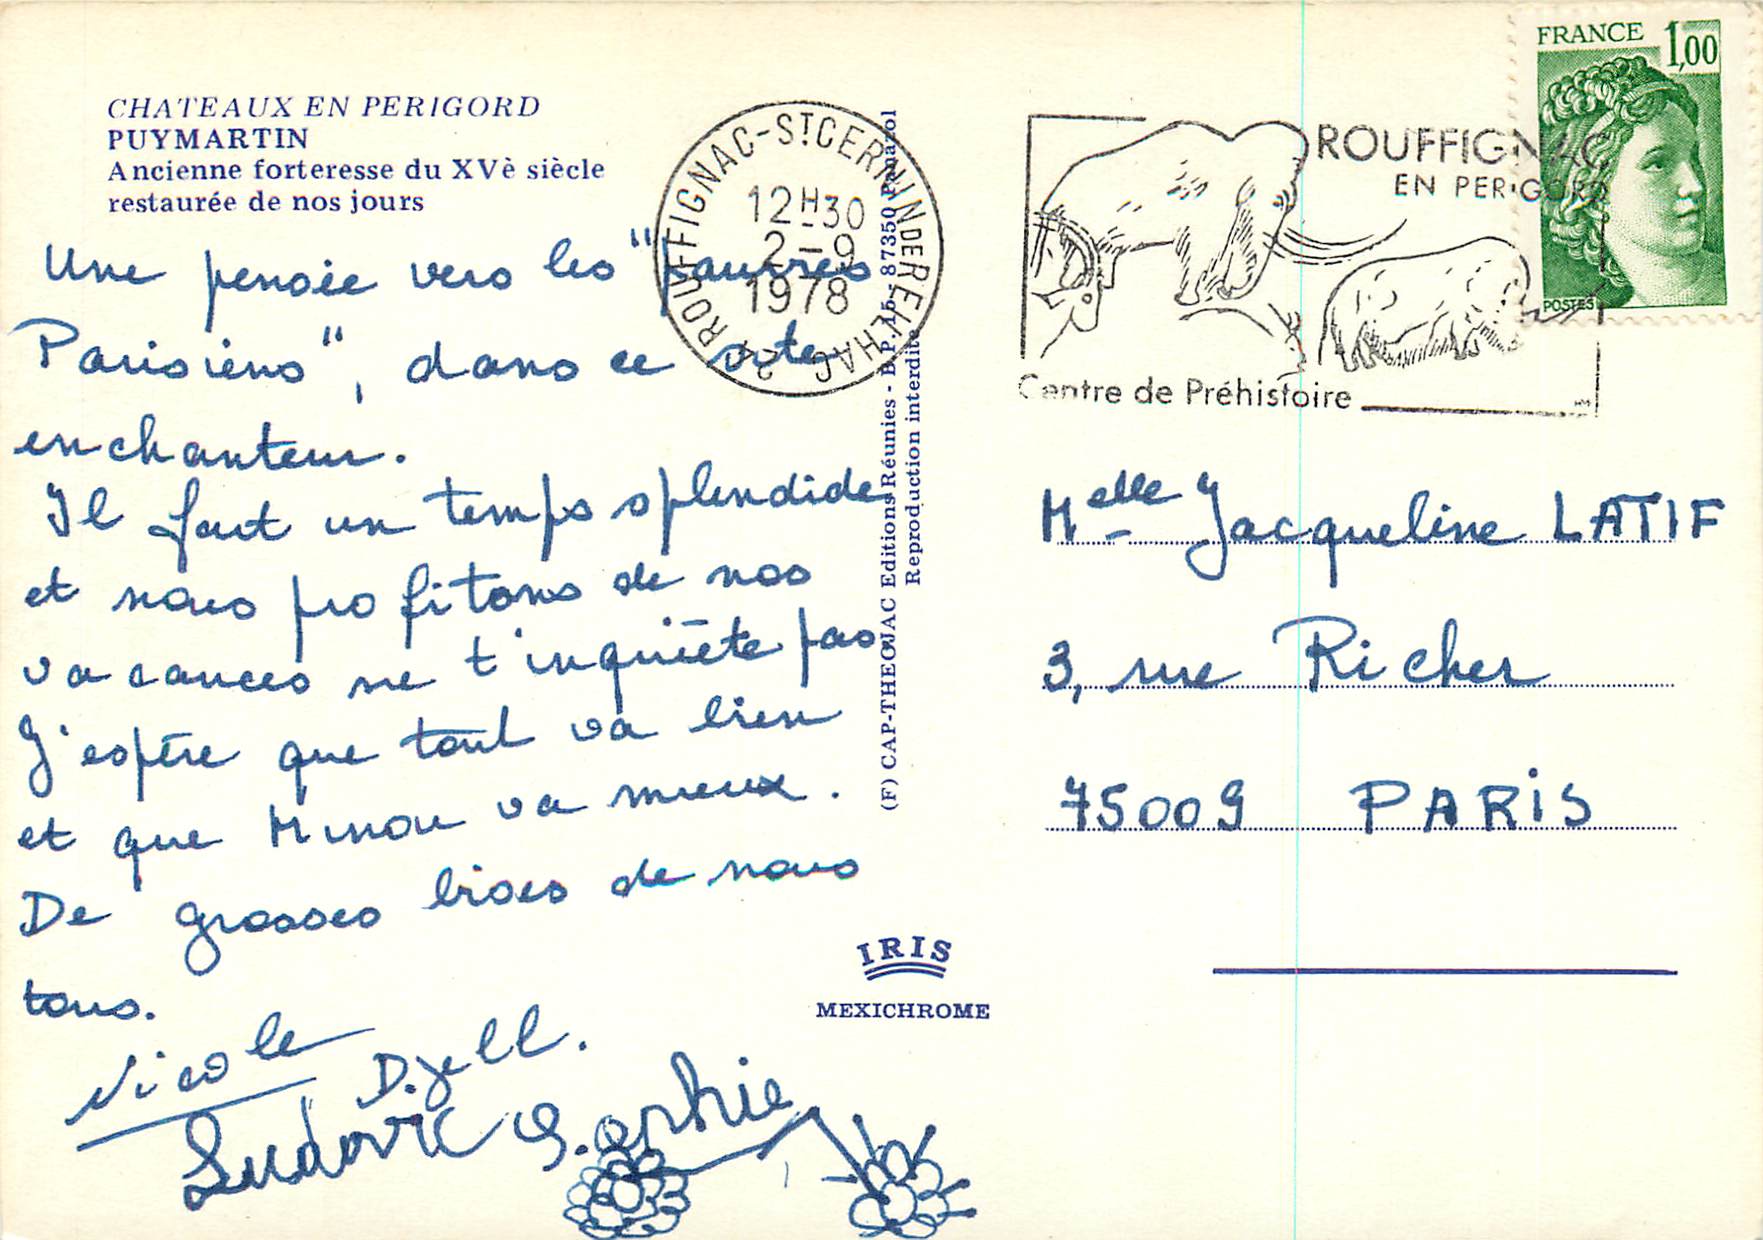 CHATEAUX EN PERIGORD
PUYMARTIN
Ancienne forteresse du XVè siècle
restaurée de nos jours
Une pensée vers les "pauvres
Parisiens", dans ce site
enchanteur.
Il fait un temps splendide
et nous profitons de nos
vacances ne t'inquiète pas
J'espère que tout va bien
et que Minou va mieux.
De grosses bises de nous
tous.
Nicole
Djell.
Ludovic Sophie
24 ROUFFIGNAC-ST CERNIN DE REILHAC
12H30
2-9
1978
(F) CAP-THEOJAC Editions Réunies - B.P. 15 - 87350 Panazol
Reproduction interdite
IRIS
MEXICHROME
ROUFFIGNAC
EN PERIGORD
Centre de Préhistoire
FRANCE 1,00
POSTES
Melle Jacqueline LATIF
3, rue Richer
75009 PARIS